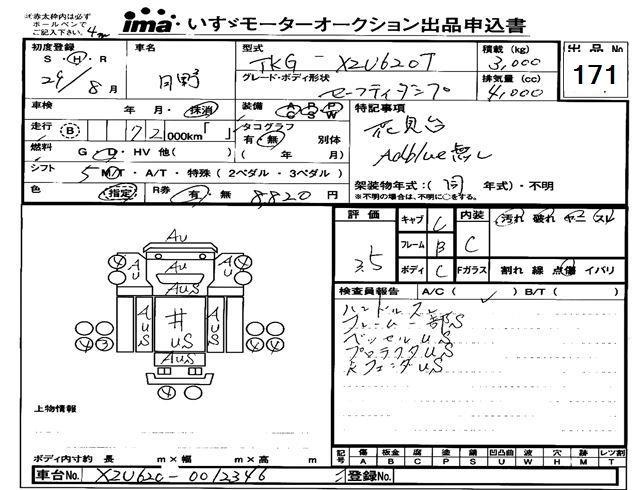 ※赤太枠内は必ず
ボールペンで
ご記入下さい。
ima いすゞモーターオークション出品申込書
初度登録 車名 型式 積載(kg) 出品No
S・H・R 日野 TKG - XZU620T 3,000 171
29/8月 グレード・ボディ形状 排気量(cc)
セーフティダンプ 4,000
車検 年・月・抹消 装備 A/C P/S P/W 特記事項
走行 B 72,000km「 」 タコグラフ
有・無 別体
花見台
燃料 G・D・HV 他( ) ( 年 月) Adblue無し
シフト 5 M/T・A/T・特殊(2ペダル・3ペダル)
架装物年式:(同 年式)・不明
色 指定 R券 有・無 8,820円 ※不明の場合は、不明に○をする。
評価 キャブ C 内装 汚れ 破れ ヤニ スレ
3.5 フレーム B C
ボディ C Fガラス 割れ 線 点傷 イバリ
検査員報告 A/C( ) B/T( )
ハンドルスレ
フレーム一部S
ベッセルUS
プロテクタUS
Rフェンダ US
AU
AU AU AU
AUS
AUS 井 US AUS
AUS
4 4
4 3 4 4
4 4
上物情報
ボディ内寸約 長 m×幅 m×高 m
記号 傷 A 板金 B 腐 C 塗 P 錆 S 凹凸曲 U 波 W 穴 H 跡 M レンズ割 T
車台No. XZU620-0012346 登録No.